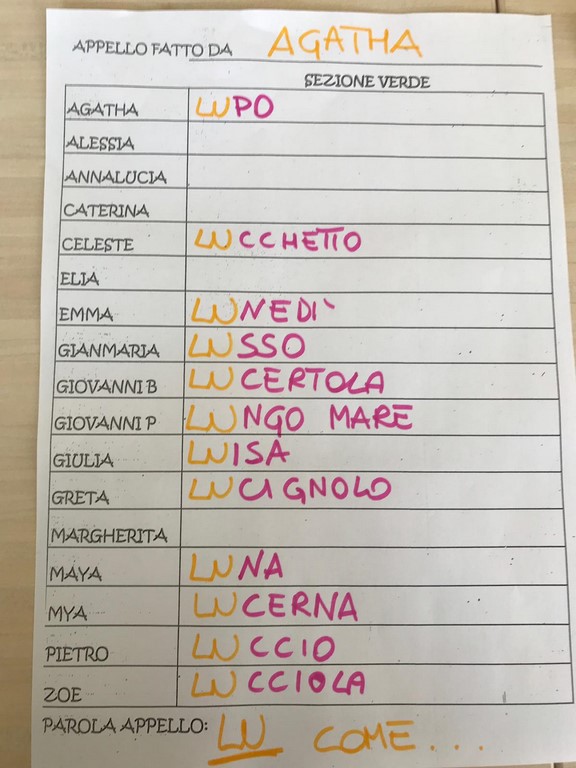 APPELLO FATTO DA AGATHA
SEZIONE VERDE
AGATHA LUPO
ALESSIA
ANNALUCIA
CATERINA
CELESTE LUCCHETTO
ELIA
EMMA LUNEDI`
GIANMARIA LUSSO
GIOVANNI B LUCERTOLA
GIOVANNI P LUNGO MARE
GIULIA LUISA
GRETA LUCIGNOLO
MARGHERITA
MAYA LUNA
MYA LUCERNA
PIETRO LUCCIO
ZOE LUCCIOLA
PAROLA APPELLO: LU COME...